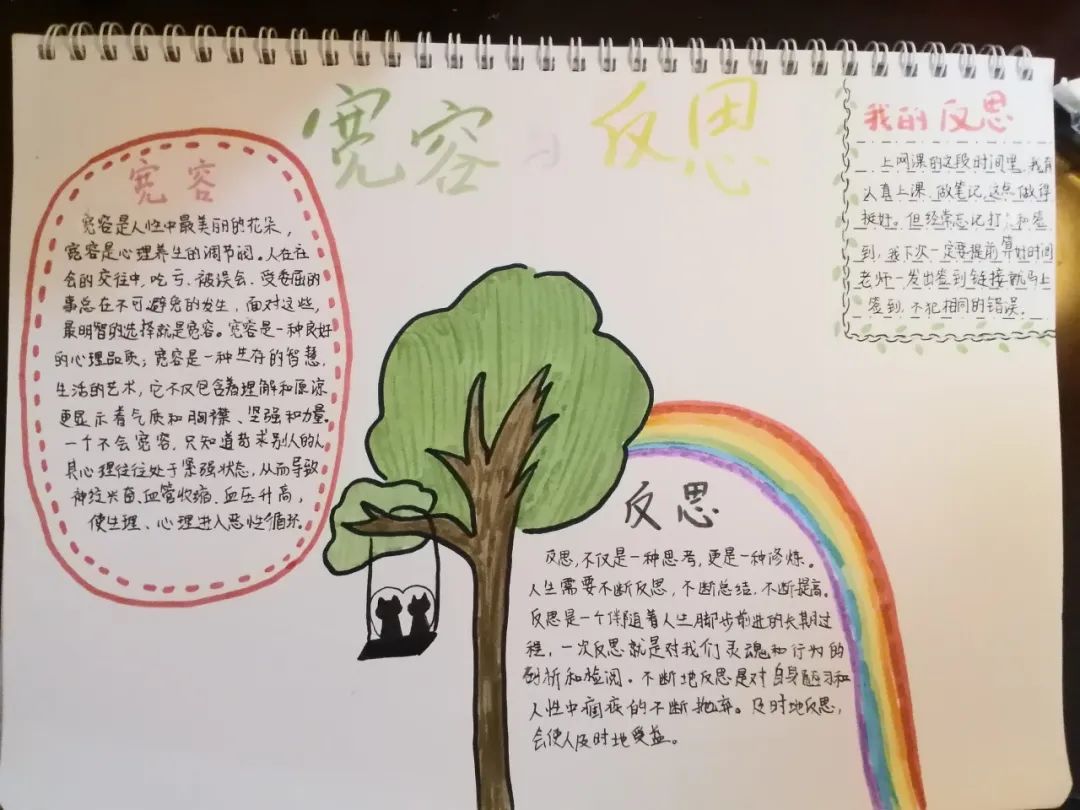 宽容与反思
宽容
宽容是人性中最美丽的花朵，
宽容是心理养生的调节阀。人在社
会的交往中，吃亏、被误会、受委屈的
事总在不可避免的发生，面对这些，
最明智的选择就是宽容。宽容是一种良好
的心理品质；宽容是一种生存的智慧，
生活的艺术，它不仅包含着理解和原谅
更显示着气质和胸襟、坚强和力量。
一个不会宽容，只知道苛求别人的人
其心理往往处于紧强状态，从而导致
神经兴奋、血管收缩、血压升高，
使生理、心理进入恶性循环。
我的反思
上网课的这段时间里，我有
认真上课，做笔记，这点做得
挺好。但经常忘记打和签
到，我下次一定要提前算好时间
老师一发出签到链接就马上
签到，不犯相同的错误。
反思
反思，不仅是一种思考，更是一种修炼。
人生需要不断反思，不断总结，不断提高。
反思是一个伴随着人生脚步前进的长期过
程，一次反思就是对我们灵魂和行为的
剖析和检阅。不断地反思是对自身陋习和
人性中痼疾的不断抛弃。及时地反思，
会使人及时地受益。